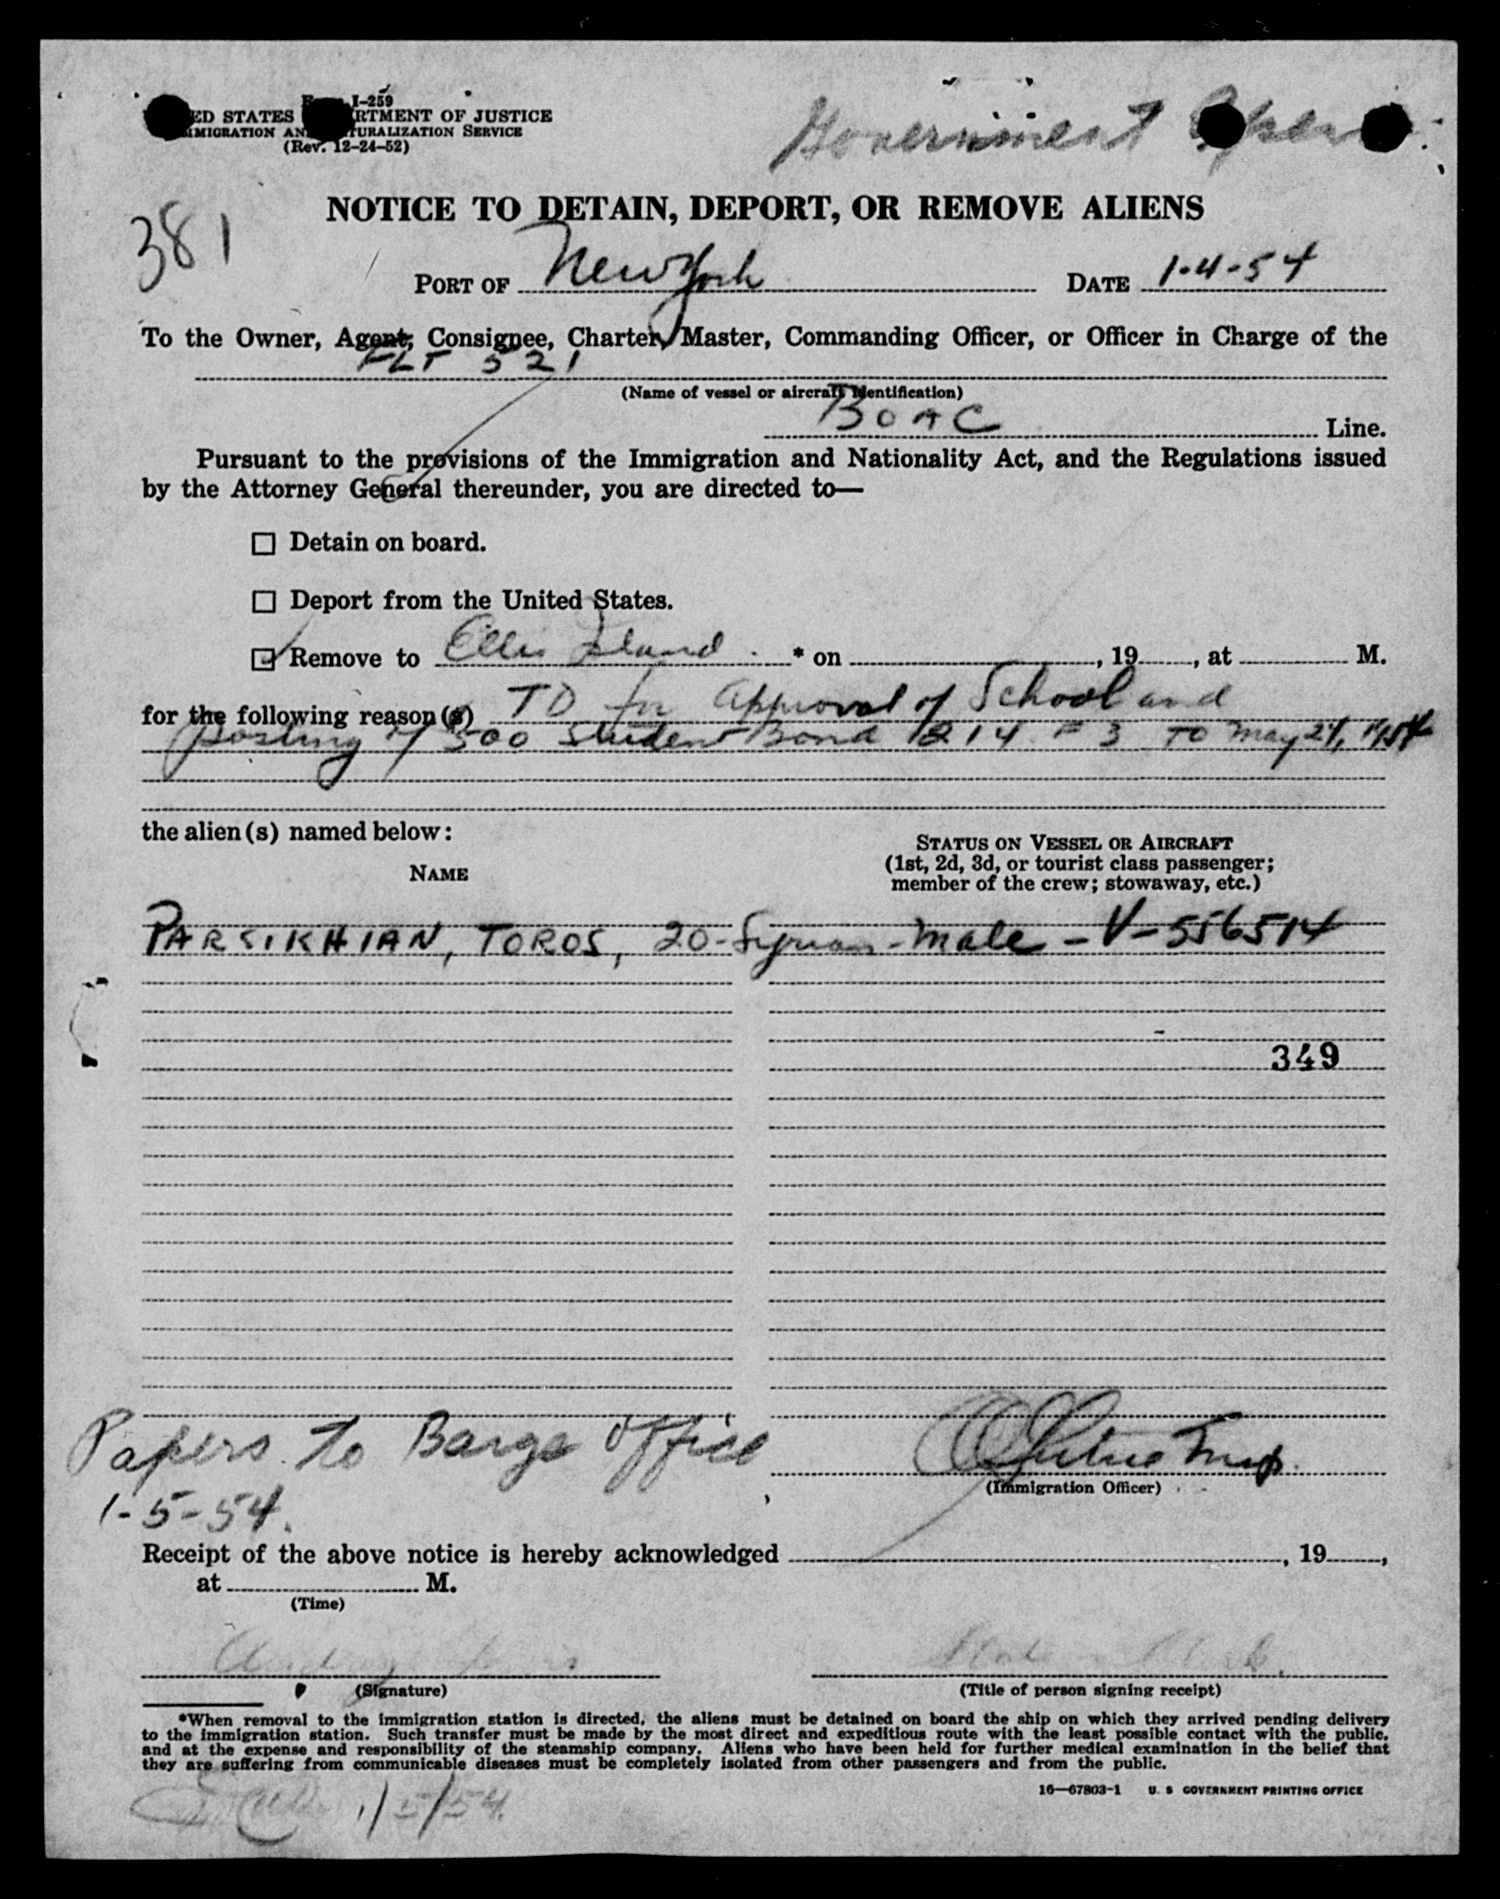 I-259
ED STATES RTMENT OF JUSTICE
MMIGRATION AN TURALIZATION SERVICE
(Rev. 12-24-52)
Government
381
NOTICE TO DETAIN, DEPORT, OR REMOVE ALIENS
PORT OF New York DATE 1-4-54
To the Owner, Agent, Consignee, Charter, Master, Commanding Officer, or Officer in Charge of the
FLT 521
(Name of vessel or aircraft identification)
BOAC Line.
Pursuant to the provisions of the Immigration and Nationality Act, and the Regulations issued
by the Attorney General thereunder, you are directed to—
Detain on board.
Deport from the United States.
Remove to Ellis Island * on , 19 , at M.
for the following reason(s) TD for Approval of School and
posting of 500 Student Bond 214 # 3 TO May 24, 1954
the alien(s) named below:
NAME
STATUS ON VESSEL OR AIRCRAFT
(1st, 2d, 3d, or tourist class passenger;
member of the crew; stowaway, etc.)
PARSIKHIAN, TOROS, 20- Syrian - Male - V-556514
349
Papers to Barge Office
1-5-54.
(Immigration Officer)
Receipt of the above notice is hereby acknowledged , 19 ,
at M.
(Time)
(Signature)
(Title of person signing receipt)
*When removal to the immigration station is directed, the aliens must be detained on board the ship on which they arrived pending delivery
to the immigration station. Such transfer must be made by the most direct and expeditious route with the least possible contact with the public,
and at the expense and responsibility of the steamship company. Aliens who have been held for further medical examination in the belief that
they are suffering from communicable diseases must be completely isolated from other passengers and from the public.
16—67803-1 U. S GOVERNMENT PRINTING OFFICE
1/5/54.